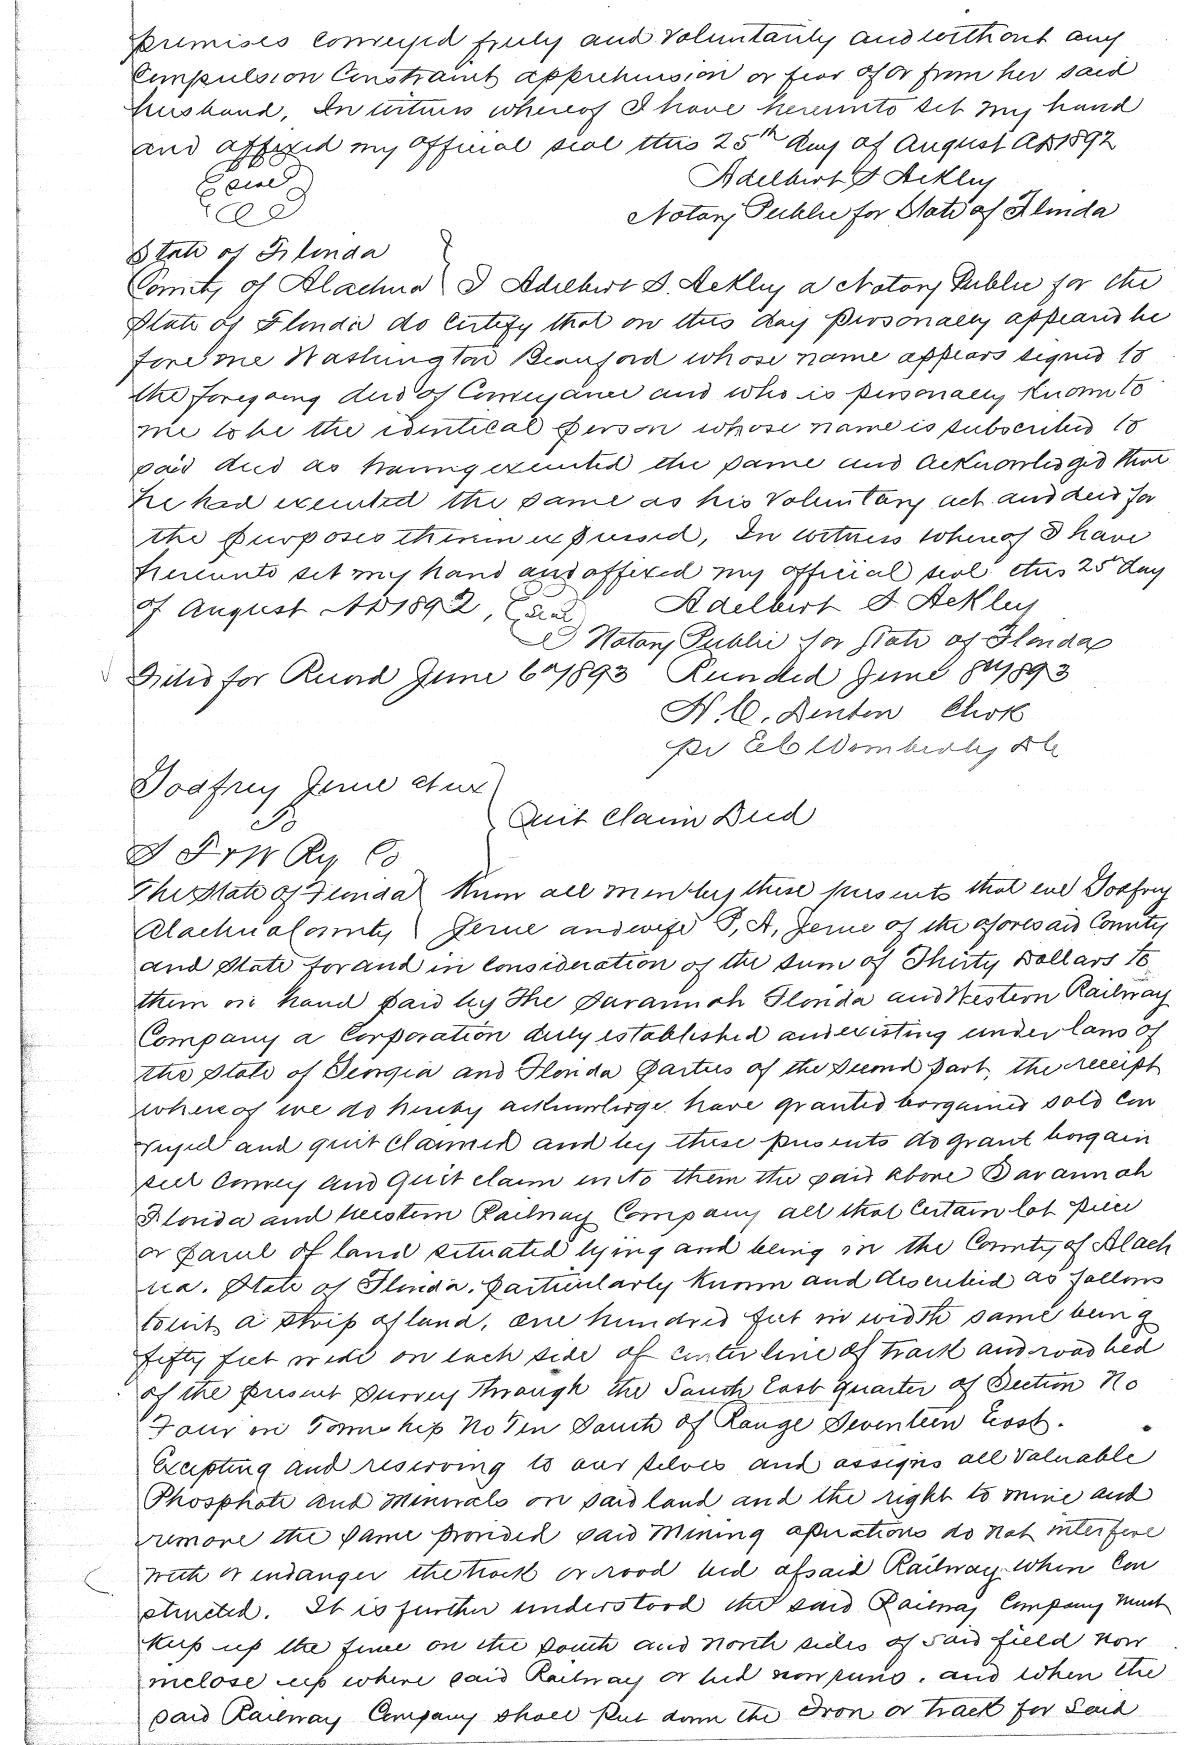 premises conveyed freely and voluntarily and without any
Compulsion Constraint apprehension or fear of or from her said
husband, In witness whereof I have hereunto set my hand
and affixed my official seal this 25th day of August AD 1892
Seal
Adelbert S Ackley
Notary Public for State of Florida
State of Florida
County of Alachua } I Adelbert S. Ackley a Notary Public for the
State of Florida do Certify that on this day personally appeared be
fore me Washington Beauford whose name appears signed to
the foregoing deed of Conveyance and who is personally known to
me to be the identical person whose name is subscribed to
said deed as having executed the same and acknowledged that
he had executed the same as his voluntary act and deed for
the purposes therein expressed, In witness whereof I have
hereunto set my hand and affixed my official seal this 25 day
of August AD 1892, Seal Adelbert S Ackley
Notary Public for State of Florida
Filed for Record June 6th 1893 Recorded June 8th 1893
H. C. Denton Clerk
pr E C Womberly DC
Godfrey Jerue et ux
To } Quit Claim Deed
S F & W Ry Co
The State of Florida } Know all men by these presents that we Godfrey
Alachua County } Jerue and wife P, A, Jerue of the aforesaid County
and State for and in Consideration of the sum of Thirty Dollars to
them in hand paid by The Savannah Florida and Western Railway
Company a Corporation duly established and existing under laws of
the State of Georgia and Florida parties of the second part, the receipt
whereof we do hereby acknowledge have granted bargained sold con
veyed and quit claimed and by these presents do grant bargain
sell convey and Quit claim unto them the said above Savannah
Florida and Western Railway Company all that certain lot piece
or parcel of land situated lying and being in the County of Alach
ua. State of Florida. particularly known and described as follows
towit, a strip of land, one hundred feet in width same being
fifty feet wide on each side of center line of track and road bed
of the present survey through the South East quarter of Section No
Four in Township No Ten South of Range Seventeen East.
Excepting and reserving to our selves and assigns all valuable
Phosphate and Minerals on said land and the right to mine and
remove the same provided said Mining operations do not interfere
with or endanger the track or road bed of said Railway when con
structed. It is further understood the said Railway Company must
keep up the fence on the south and north sides of said field now
inclose up where said Railway or bed now runs. and when the
said Railway Company shall put down the Iron or track for said